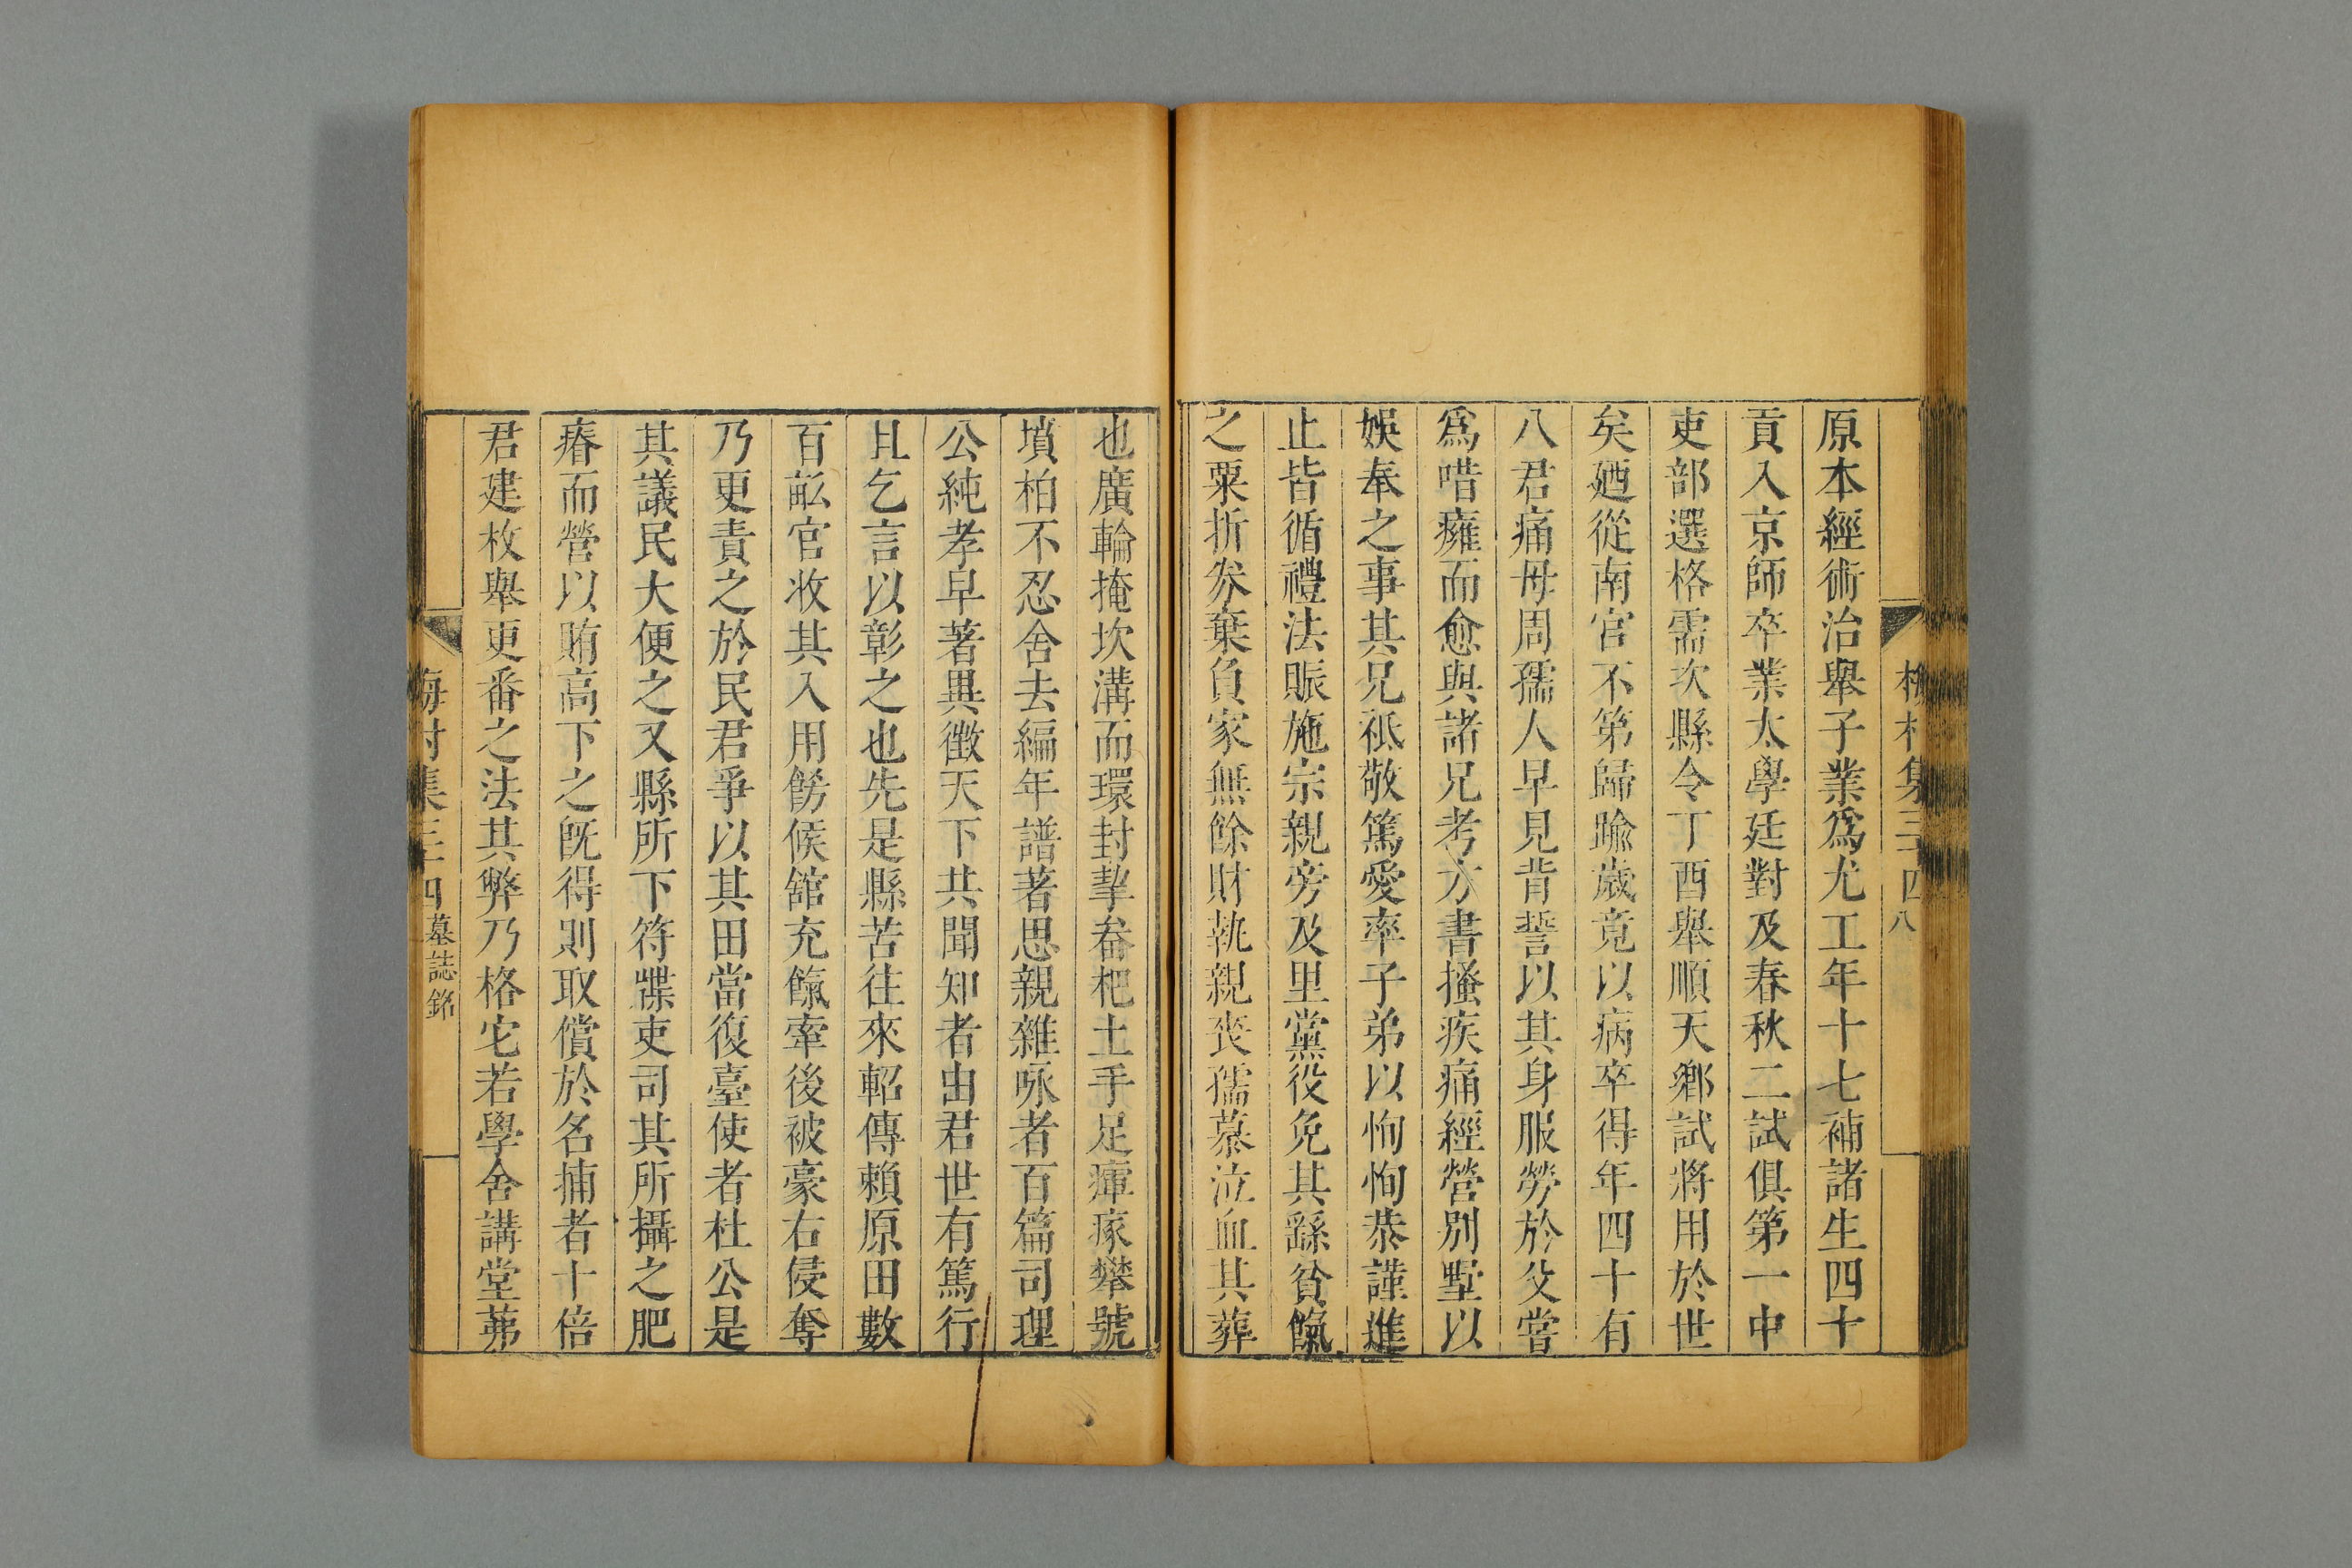 梅村集三十四 八
原本經術治舉子業爲尤工年十七補諸生四十
貢入京師卒業太學廷對及春秋二試俱第一中
吏部選格需次縣令丁酉舉順天鄉試將用於世
矣廼從南宮不第歸踰歲竟以病卒得年四十有
八君痛母周孺人早見背誓以其身服勞於父嘗
爲唶癰而愈與諸兄考方書搔疾痛經營別墅以
娛奉之事其兄祗敬篤愛率子弟以恂恂恭謹進
止皆循禮法賑施宗親旁及里黨役免其繇貧餼
之粟折劵棄負家無餘財執親喪孺慕泣血其葬
也廣輪掩坎溝而環封挶畚杷土手足瘴瘃攀號
墳柏不忍舍去編年譜著思親雜咏者百篇司理
公純孝早著異徵天下共聞知者由君世有篤行
且乞言以彰之也先是縣苦往來軺傳賴原田數
百畝官收其入用餝候舘充餼牽後被豪右侵奪
乃更責之於民君爭以其田當復臺使者杜公是
其議民大便之又縣所下符牒吏司其所攝之肥
瘠而營以賄高下之旣得則取償於名捕者十倍
君建枚舉更番之法其弊乃格它若學舍講堂茀
梅村集三十四 墓誌銘